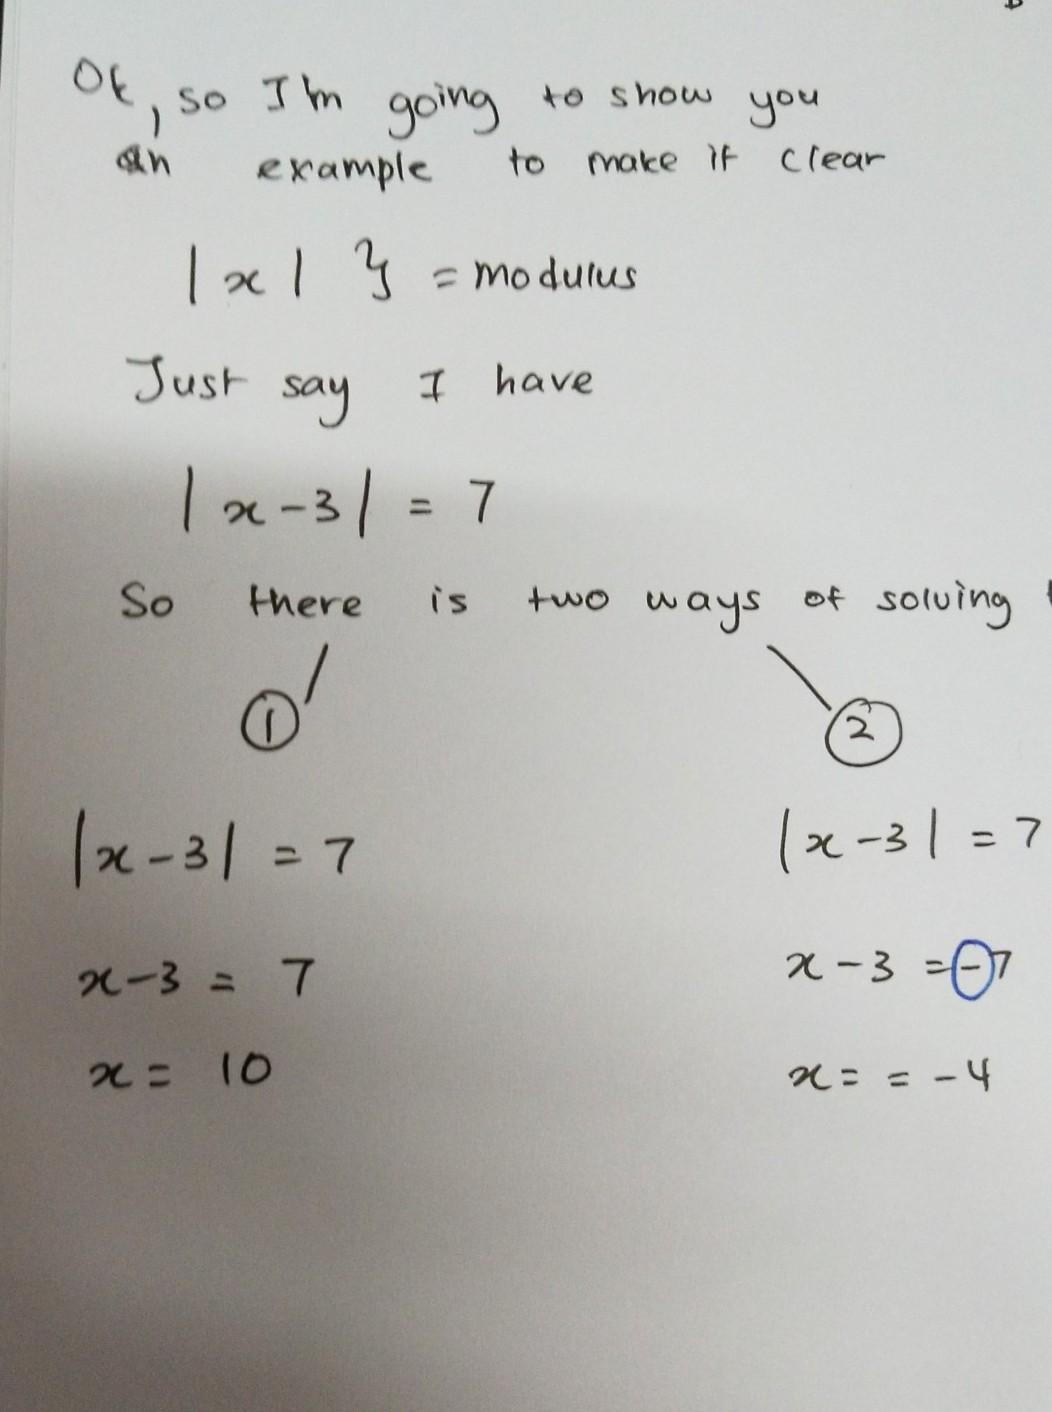 Ok, so I'm going to show you
an example to make it clear
|x| } = modulus
Just say I have
|x-3| = 7
So there is two ways of solving
1 2
|x-3| = 7 |x-3| = 7
x-3 = 7 x-3 = -7
x = 10 x = = -4